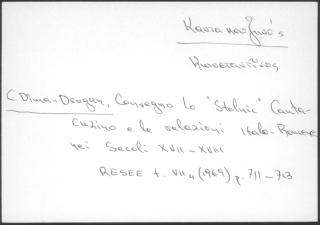 Καντακουζηνός
Κωνσταντῖνος
C Dima-Drogan, Convegno lo "Stolnic" Canta-
Cuzino e le relazioni Italo-Romene
nei Secoli XVII - XVIII
RESEE t. VII 4 (1969) p. 711 - 713